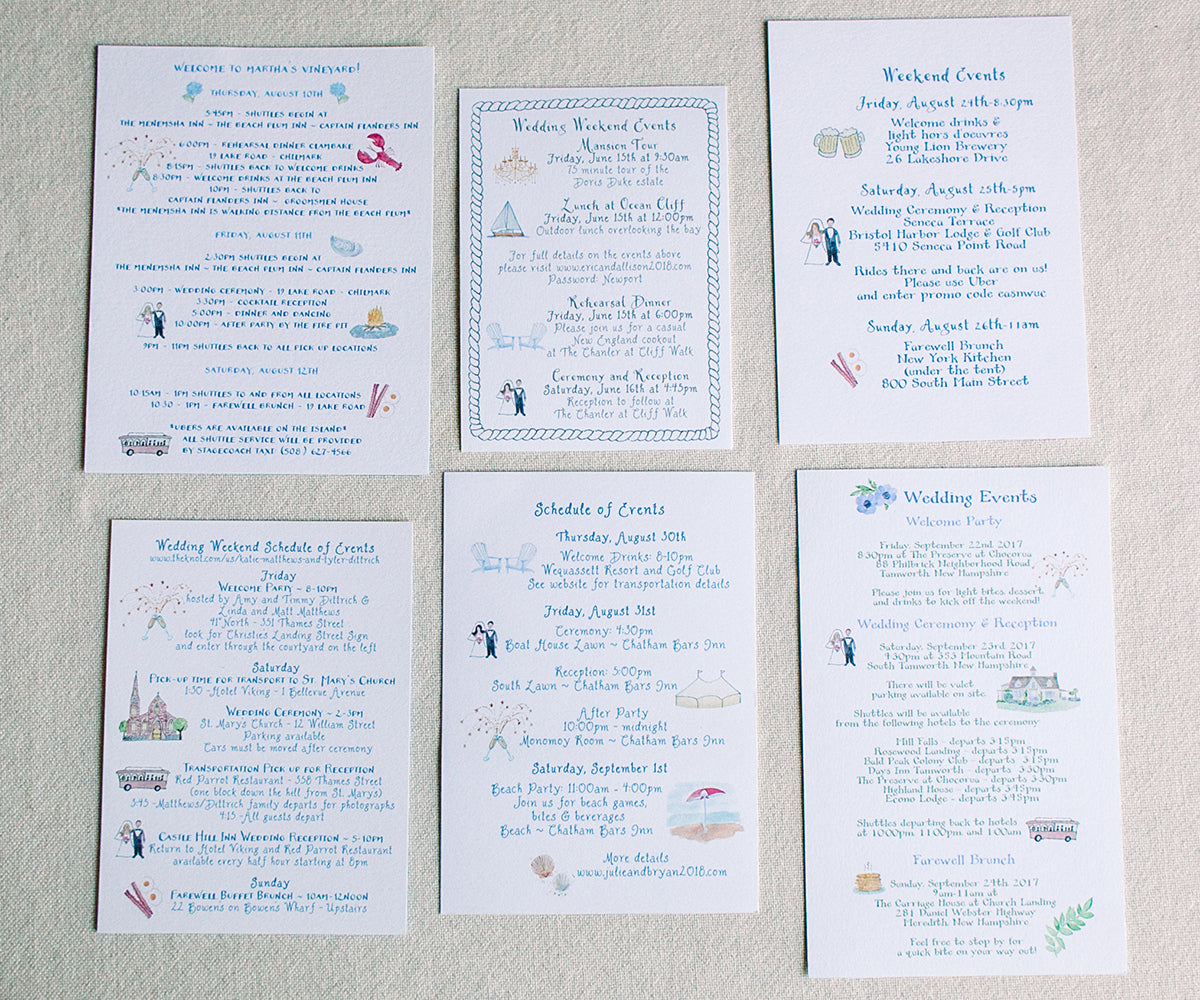 WELCOME TO MARTHA'S VINEYARD!
THURSDAY, AUGUST 10TH
5:45PM - SHUTTLES BEGIN AT
THE MENEMSHA INN ~ THE BEACH PLUM INN ~ CAPTAIN FLANDERS INN
6:00PM - REHEARSAL DINNER CLAMBAKE
19 LAKE ROAD - CHILMARK
8:15PM - SHUTTLES BACK TO WELCOME DRINKS
8:30PM - WELCOME DRINKS AT THE BEACH PLUM INN
10PM - SHUTTLES BACK TO
CAPTAIN FLANDERS INN ~ GROOMSMEN HOUSE
*THE MENEMSHA INN IS WALKING DISTANCE FROM THE BEACH PLUM*
FRIDAY, AUGUST 11TH
2:30PM SHUTTLES BEGIN AT
THE MENEMSHA INN ~ THE BEACH PLUM INN ~ CAPTAIN FLANDERS INN
3:00PM - WEDDING CEREMONY - 19 LAKE ROAD - CHILMARK
3:30PM - COCKTAIL RECEPTION
5:00PM - DINNER AND DANCING
10:00PM - AFTER PARTY BY THE FIRE PIT
9PM - 11PM SHUTTLES BACK TO ALL PICK UP LOCATIONS
SATURDAY, AUGUST 12TH
10:15AM - 1PM SHUTTLES TO AND FROM ALL LOCATIONS
10:30 - 1PM - FAREWELL BRUNCH - 19 LAKE ROAD
*UBERS ARE AVAILABLE ON THE ISLAND*
ALL SHUTTLE SERVICE WILL BE PROVIDED
BY STAGECOACH TAXI: (508) 627-4566
Wedding Weekend Events
Mansion Tour
Friday, June 15th at 9:30am
75 minute tour of the
Doris Duke estate
Lunch at Ocean Cliff
Friday, June 15th at 12:00pm
Outdoor lunch overlooking the bay
For full details on the events above
please visit www.ericandallison2018.com
Password: Newport
Rehearsal Dinner
Friday, June 15th at 6:00pm
Please join us for a casual
New England cookout
at The Chanler at Cliff Walk
Ceremony and Reception
Saturday, June 16th at 4:45pm
Reception to follow at
The Chanler at Cliff Walk
Weekend Events
Friday, August 24th-8:30pm
Welcome drinks &
light hors d'oeuvres
Young Lion Brewery
26 Lakeshore Drive
Saturday, August 25th-5pm
Wedding Ceremony & Reception
Seneca Terrace
Bristol Harbor Lodge & Golf Club
5410 Seneca Point Road
Rides there and back are on us!
Please use Uber
and enter promo code casnwuc
Sunday, August 26th-11am
Farewell Brunch
New York Kitchen
(under the tent)
800 South Main Street
Wedding Weekend Schedule of Events
www.theknot.com/us/katie-matthews-and-tyler-dittrich
Friday
Welcome Party ~ 8-10pm
hosted by Amy and Timmy Dittrich &
Linda and Matt Matthews
41° North - 351 Thames Street
look for Christies Landing Street Sign
and enter through the courtyard on the left
Saturday
Pick-up time for transport to St. Mary's Church
1:30 -Hotel Viking - 1 Bellevue Avenue
Wedding Ceremony ~ 2-3pm
St. Marys Church - 12 William Street
Parking available
Cars must be moved after ceremony
Transportation Pick up for Reception
Red Parrot Restaurant - 358 Thames Street
(one block down the hill from St. Marys)
3:45 -Matthews/Dittrich family departs for photographs
4:15 -All guests depart
Castle Hill Inn Wedding Reception ~ 5-10pm
Return to Hotel Viking and Red Parrot Restaurant
available every half hour starting at 8pm
Sunday
Farewell Buffet Brunch ~ 10am-12noon
22 Bowens on Bowens Wharf - Upstairs
Schedule of Events
Thursday, August 30th
Welcome Drinks: 8-10pm
Wequassett Resort and Golf Club
See website for transportation details
Friday, August 31st
Ceremony: 4:30pm
Boat House Lawn ~ Chatham Bars Inn
Reception: 5:00pm
South Lawn ~ Chatham Bars Inn
After Party
10:00pm - midnight
Monomoy Room ~ Chatham Bars Inn
Saturday, September 1st
Beach Party: 11:00am - 4:00pm
Join us for beach games,
bites & beverages
Beach ~ Chatham Bars Inn
More details
www.julieandbryan2018.com
Wedding Events
Welcome Party
Friday, September 22nd 2017
8:30pm at The Preserve at Chocorua
88 Philbrick Neighborhood Road
Tamworth, New Hampshire
Please join us for light bites dessert,
and drinks to kick off the weekend!
Wedding Ceremony & Reception
Saturday, September 23rd 2017
4:30pm at 353 Mountain Road
South Tamworth, New Hampshire
There will be valet
parking available on site.
Shuttles will be available
from the following hotels to the ceremony
Mill Falls - departs 3:15pm
Rosewood Landing - departs 3:15pm
Bald Peak Colony Club - departs 3:15pm
Days Inn Tamworth - departs 3:30pm
The Preserve at Chocorua - departs 3:30pm
Highland House - departs 3:45pm
Econo Lodge - departs 3:45pm
Shuttles departing back to hotels
at 10:00pm, 11:00pm, and 1:00am
Farewell Brunch
Sunday, September 24th 2017
9am-11am at
The Carriage House at Church Landing
281 Daniel Webster Highway
Meredith, New Hampshire
Feel free to stop by for
a quick bite on your way out!